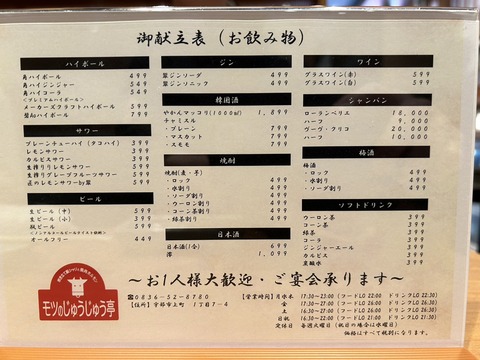 御献立表（お飲み物）
ハイボール
角ハイボール 499
角ハイジンジャー 549
角ハイコーラ 549
<プレミアムハイボール>
メーカーズクラフトハイボール 599
碧Aoハイボール 599
サワー
プレーンチューハイ（タコハイ） 399
レモンサワー 399
カルピスサワー 399
生搾りレモンサワー 599
生搾りグレープフルーツサワー 599
匠のレモンサワーby翠 599
ビール
生ビール（中） 599
生ビール（小） 399
瓶ビール 599
オールフリー 449
モツのじゅうじゅう亭
ジン
翠ジンソーダ 499
翠ジンソニック 499
韓国酒
やかんマッコリ(1000ml) 1,899
チャミスル
・プレーン
・マスカット
・スモモ
焼酎
焼酎(麦・芋)
・ロック
・水割り
・ソーダ割り
・ウーロン割り
・コーン茶割り
・緑茶割り
日本酒
日本酒(1合) 699
ワイン
グラスワイン(赤) 599
グラスワイン(白) 599
シャンパン
ローランペリエ 18,000
ハーフ 9,000
ヴーヴ・クリコ 20,000
ハーフ 10,000
梅酒
梅酒
・ロック
・水割り
・ソーダ割り
ソフトドリンク
ウーロン茶
コーン茶
緑茶
コーラ
ジンジャーエール
カルピス
炭酸水
～お1人様大歓迎・ご宴会承ります～
0836-52-8780
【住所】宇部市上町 1丁目7-4
【営業時間】月水木 17:30～23:00(フードLO 22:00 ドリンクLO 22:30)
金 17:30～24:00
土
日祝 16:30～22:00
定休日 毎週火曜日（祝日の場合は水曜日）
価格はすべて税別になります。